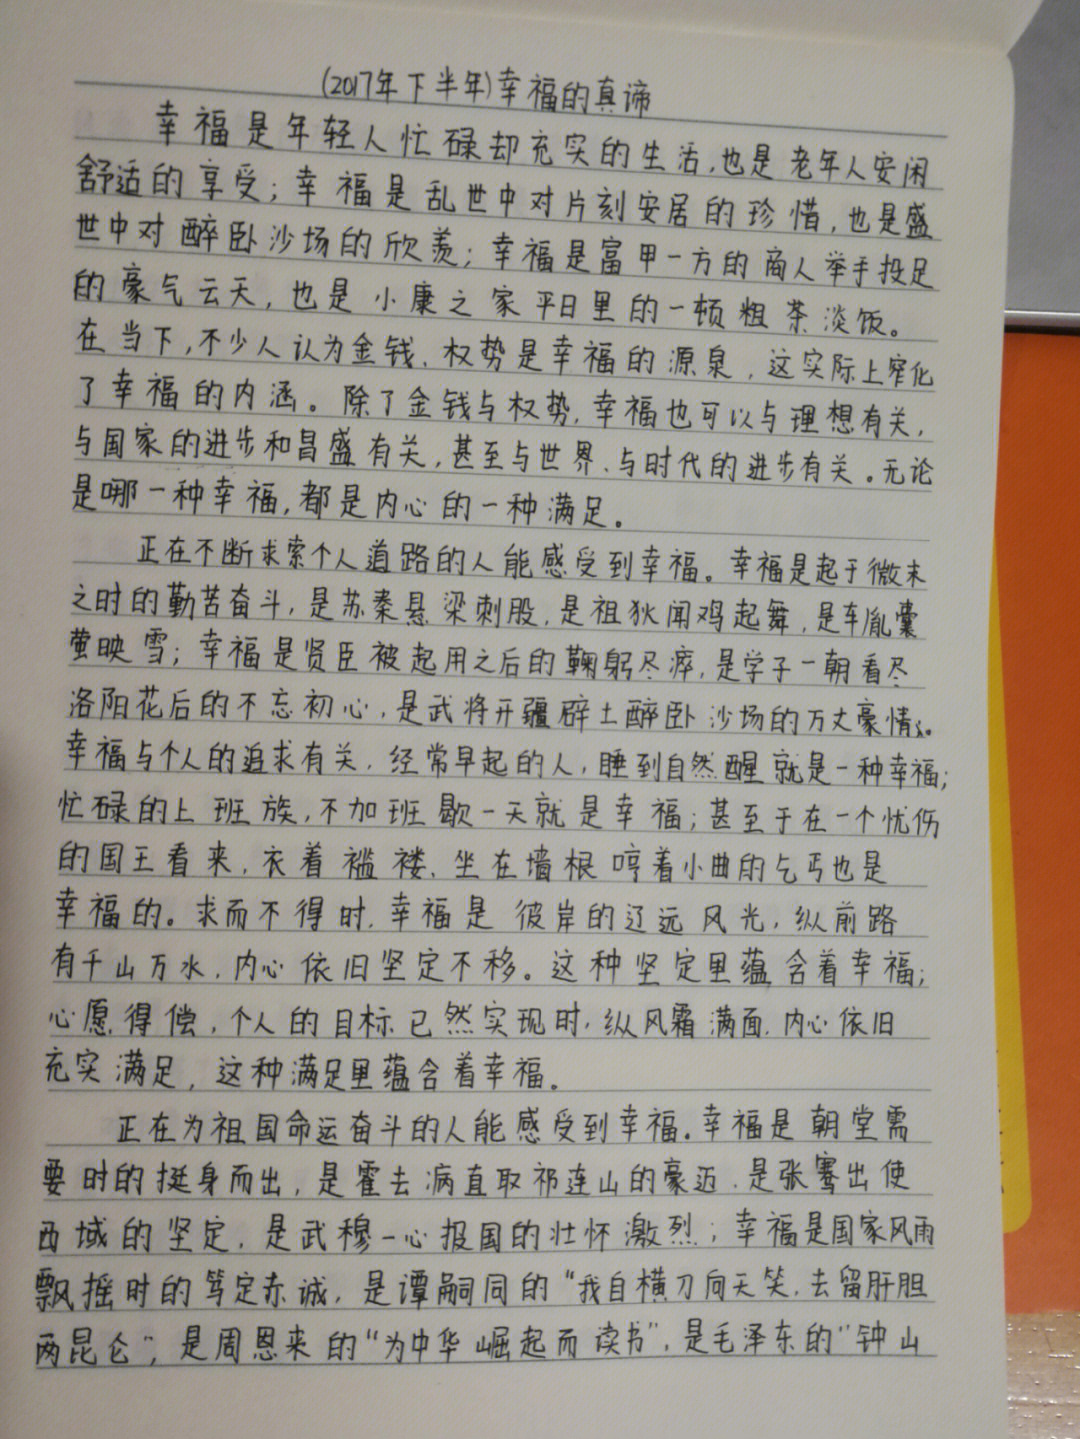 (2017年下半年)幸福的真谛
幸福是年轻人忙碌却充实的生活,也是老年人安闲
舒适的享受;幸福是乱世中对片刻安居的珍惜,也是盛
世中对醉卧沙场的欣羡;幸福是富甲一方的商人举手投足
的豪气云天,也是小康之家平日里的一顿粗茶淡饭。
在当下,不少人认为金钱、权势是幸福的源泉,这实际上窄化
了幸福的内涵。除了金钱与权势,幸福也可以与理想有关,
与国家的进步和昌盛有关,甚至与世界、与时代的进步有关。无论
是哪一种幸福,都是内心的一种满足。
正在不断求索个人道路的人能感受到幸福。幸福是起于微末
之时的勤苦奋斗,是苏秦悬梁刺股,是祖狄闻鸡起舞,是车胤囊
萤映雪;幸福是贤臣被起用之后的鞠躬尽瘁,是学子一朝看尽
洛阳花后的不忘初心,是武将开疆辟土醉卧沙场的万丈豪情。
幸福与个人的追求有关,经常早起的人,睡到自然醒就是一种幸福;
忙碌的上班族,不加班歇一天就是幸福;甚至于在一个忧伤
的国王看来,衣着褴褛、坐在墙根哼着小曲的乞丐也是
幸福的。求而不得时,幸福是彼岸的辽远风光,纵前路
有千山万水,内心依旧坚定不移。这种坚定里蕴含着幸福;
心愿得偿,个人的目标已然实现时,纵风霜满面,内心依旧
充实满足,这种满足里蕴含着幸福。
正在为祖国命运奋斗的人能感受到幸福。幸福是朝堂需
要时的挺身而出,是霍去病直取祁连山的豪迈,是张骞出使
西域的坚定,是武穆一心报国的壮怀激烈;幸福是国家风雨
飘摇时的笃定赤诚,是谭嗣同的“我自横刀向天笑,去留肝胆
两昆仑”,是周恩来的“为中华崛起而读书”,是毛泽东的“钟山